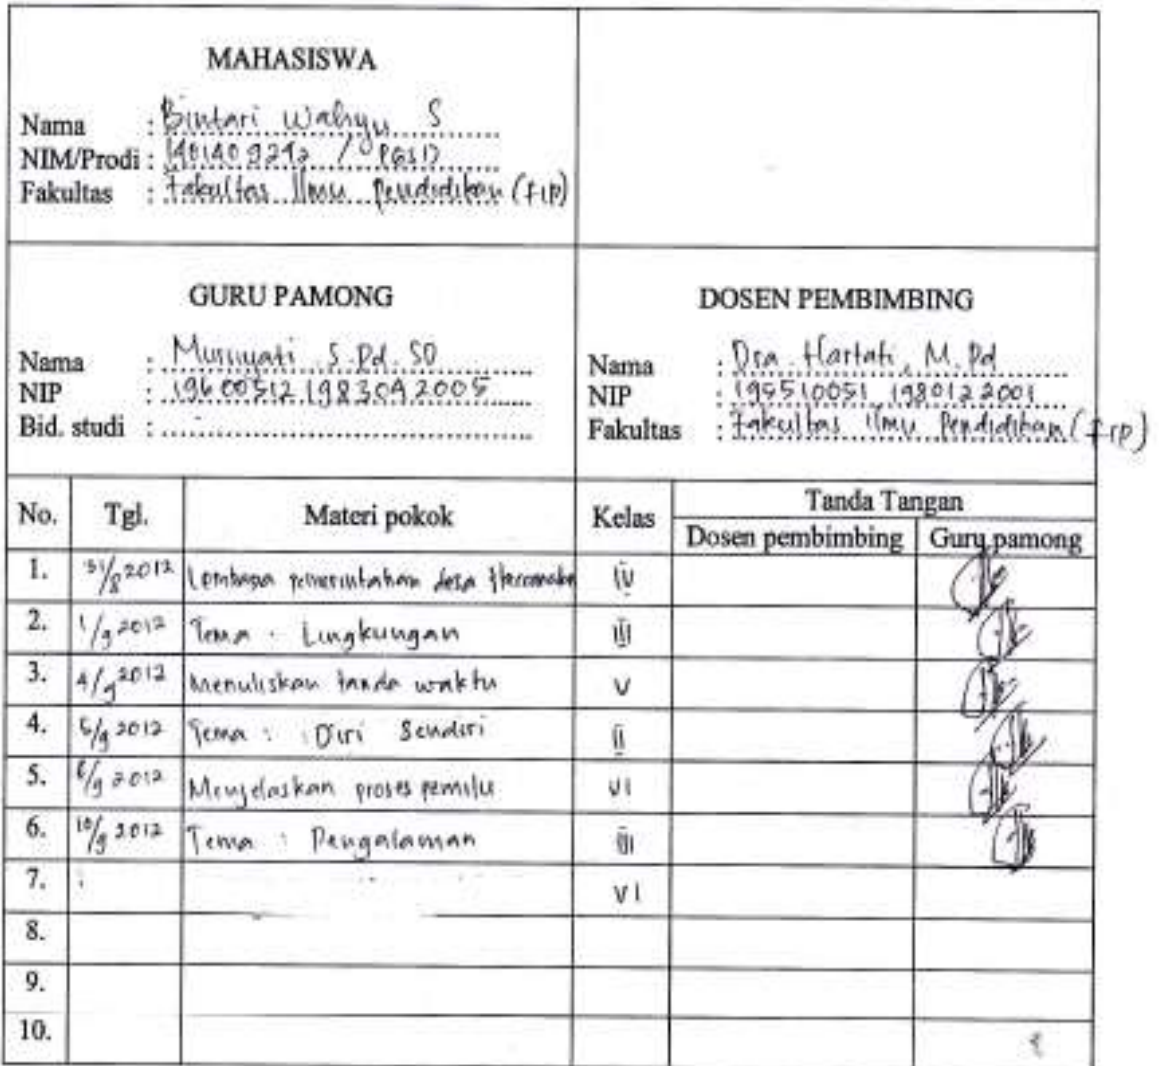 MAHASISWA
Nama : Bintari Wahyu S
NIM/Prodi : 1401409292 / PGSD
Fakultas : Fakultas Ilmu Pendidikan (FIP)
GURU PAMONG
Nama : Murniyati S.Pd. SD
NIP : 19600512 198304 2005
Bid. studi :
DOSEN PEMBIMBING
Nama : Dra. Hartati, M.Pd
NIP : 195510051 1980122001
Fakultas : Fakultas Ilmu Pendidikan (FIP)
No. Tgl. Materi pokok Kelas Tanda Tangan
Dosen pembimbing Guru pamong
1. 31/8 2012 Lembaga pemerintahan desa IV
2. 1/9 2012 Tema : Lingkungan III
3. 4/9 2012 Menuliskan tanda waktu V
4. 5/9 2012 Tema : Diri Sendiri II
5. 6/9 2012 Menjelaskan proses pemilu VI
6. 10/9 2012 Tema : Pengalaman III
7. VI
8.
9.
10.